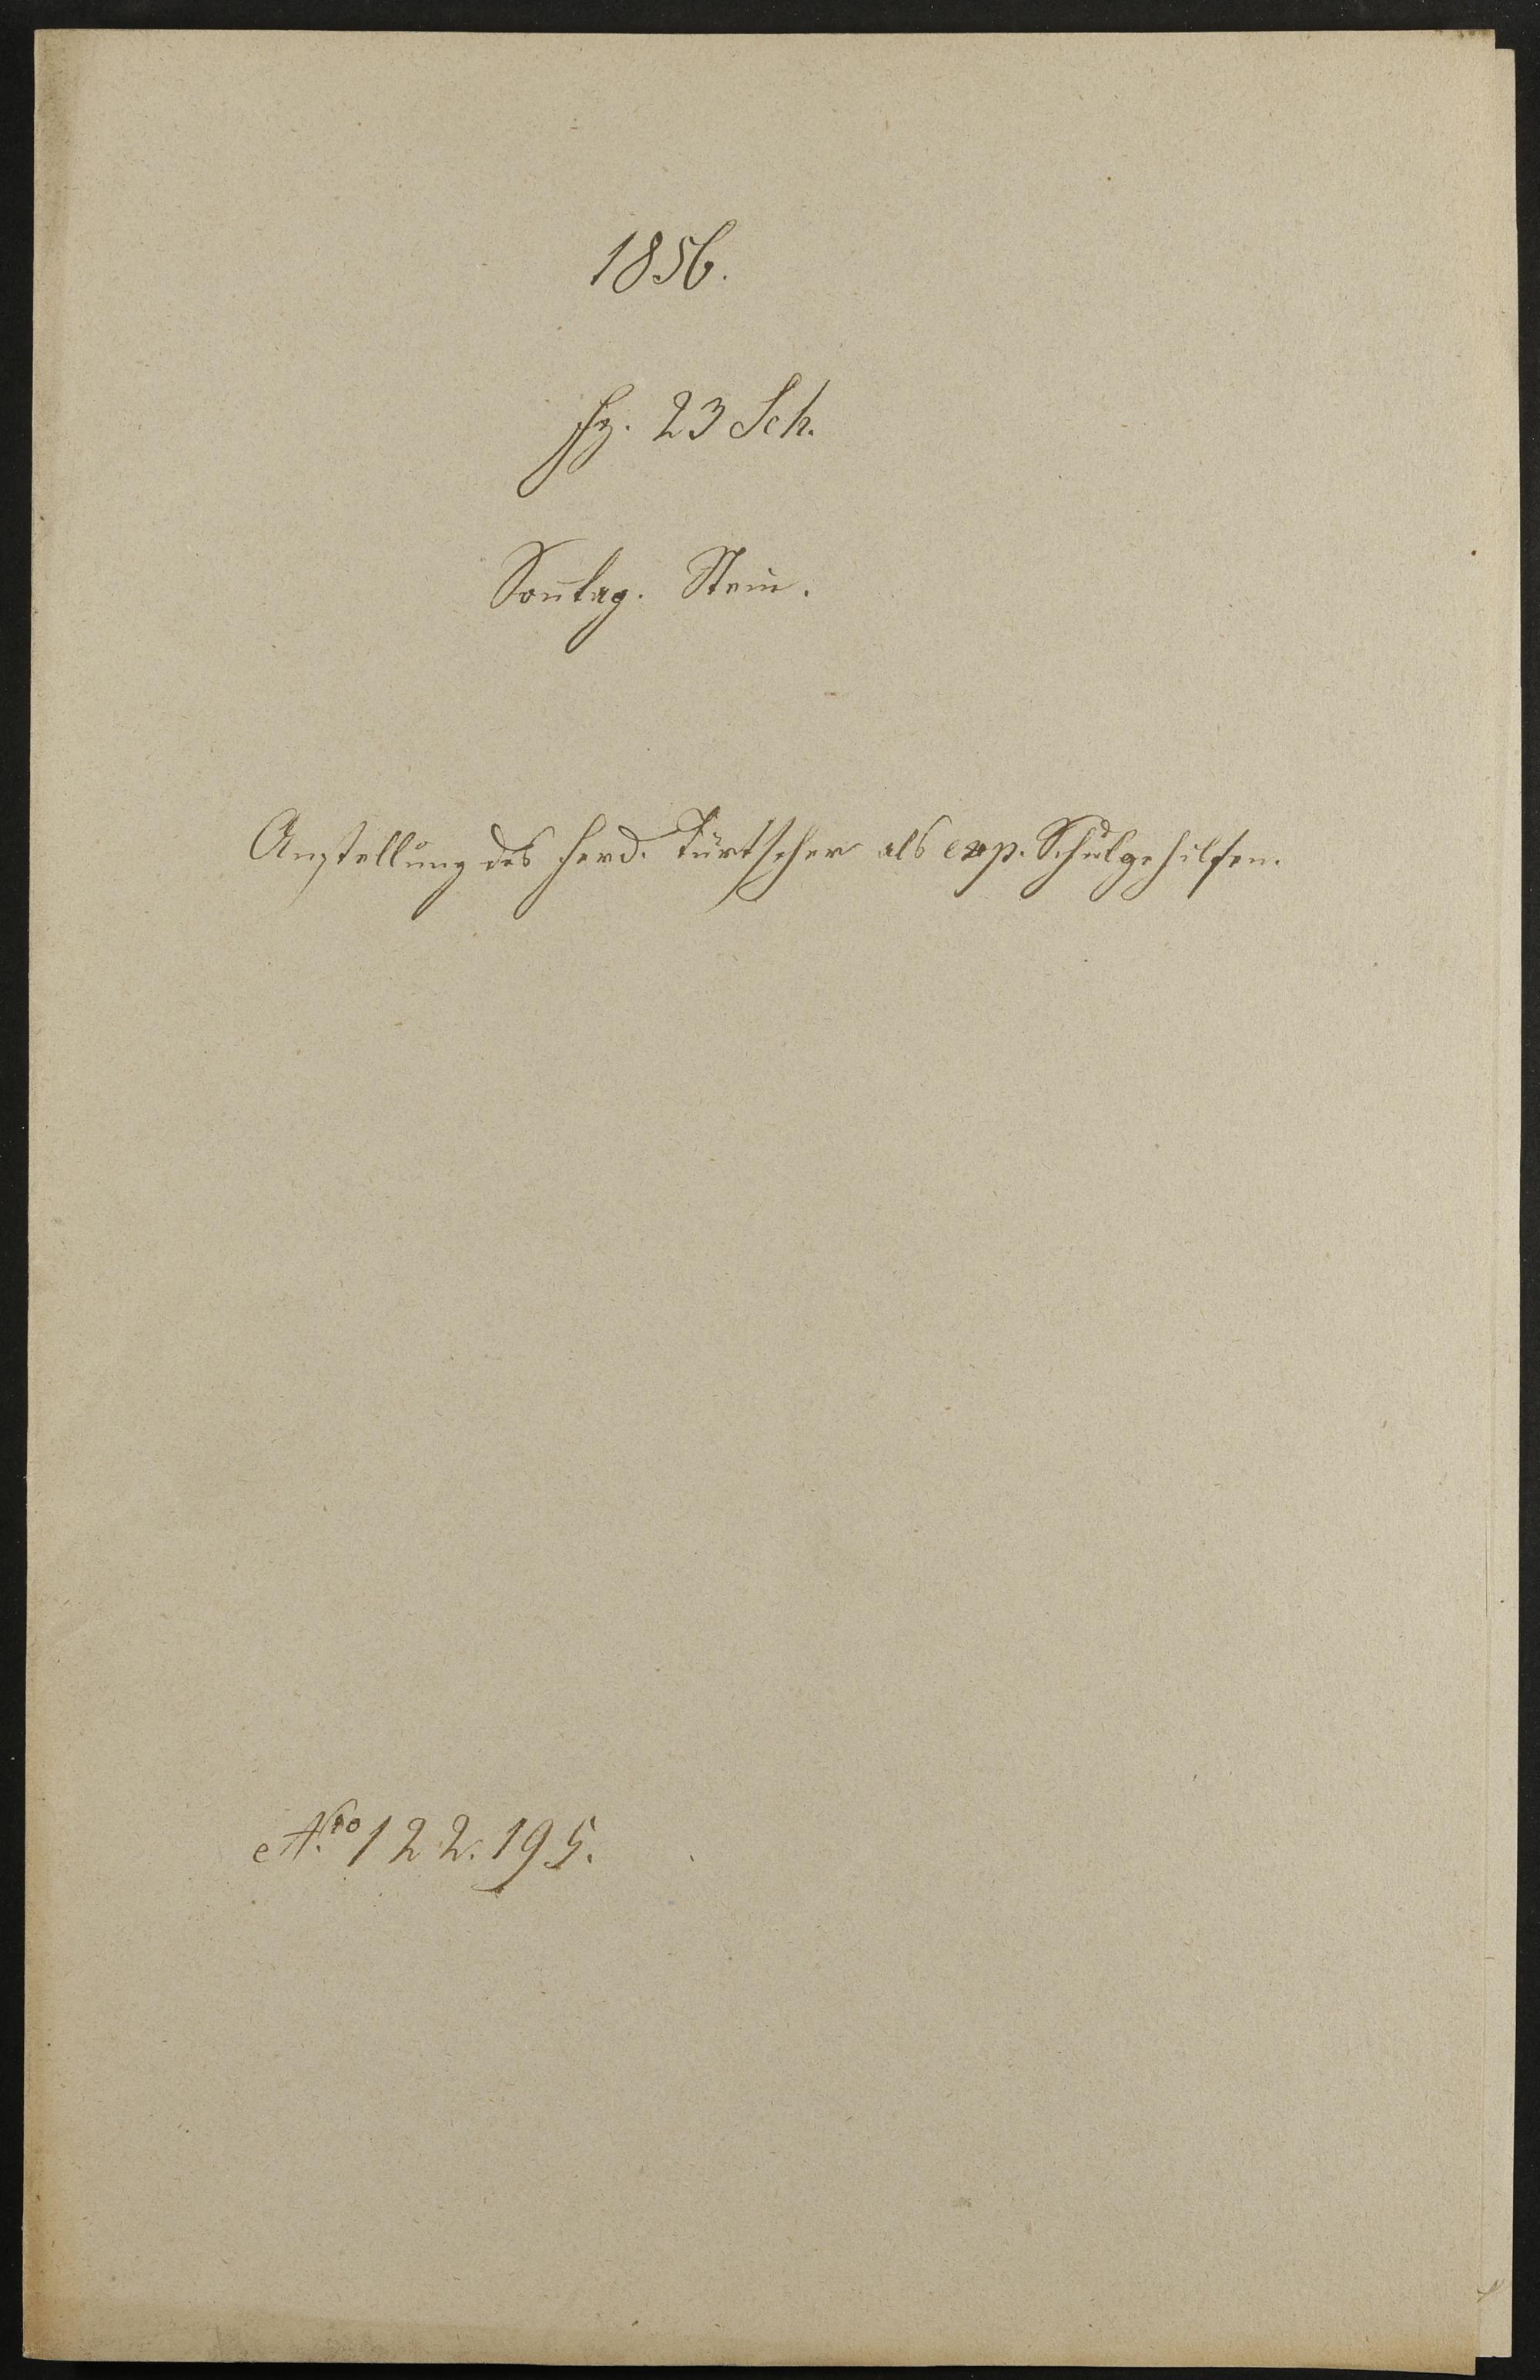 1856.
Fz. 23 Sch.
Sontag. Stein.
Anstellung des Ferd. Türtscher als exp. Schulgehilfen.
Nro 122. 195.